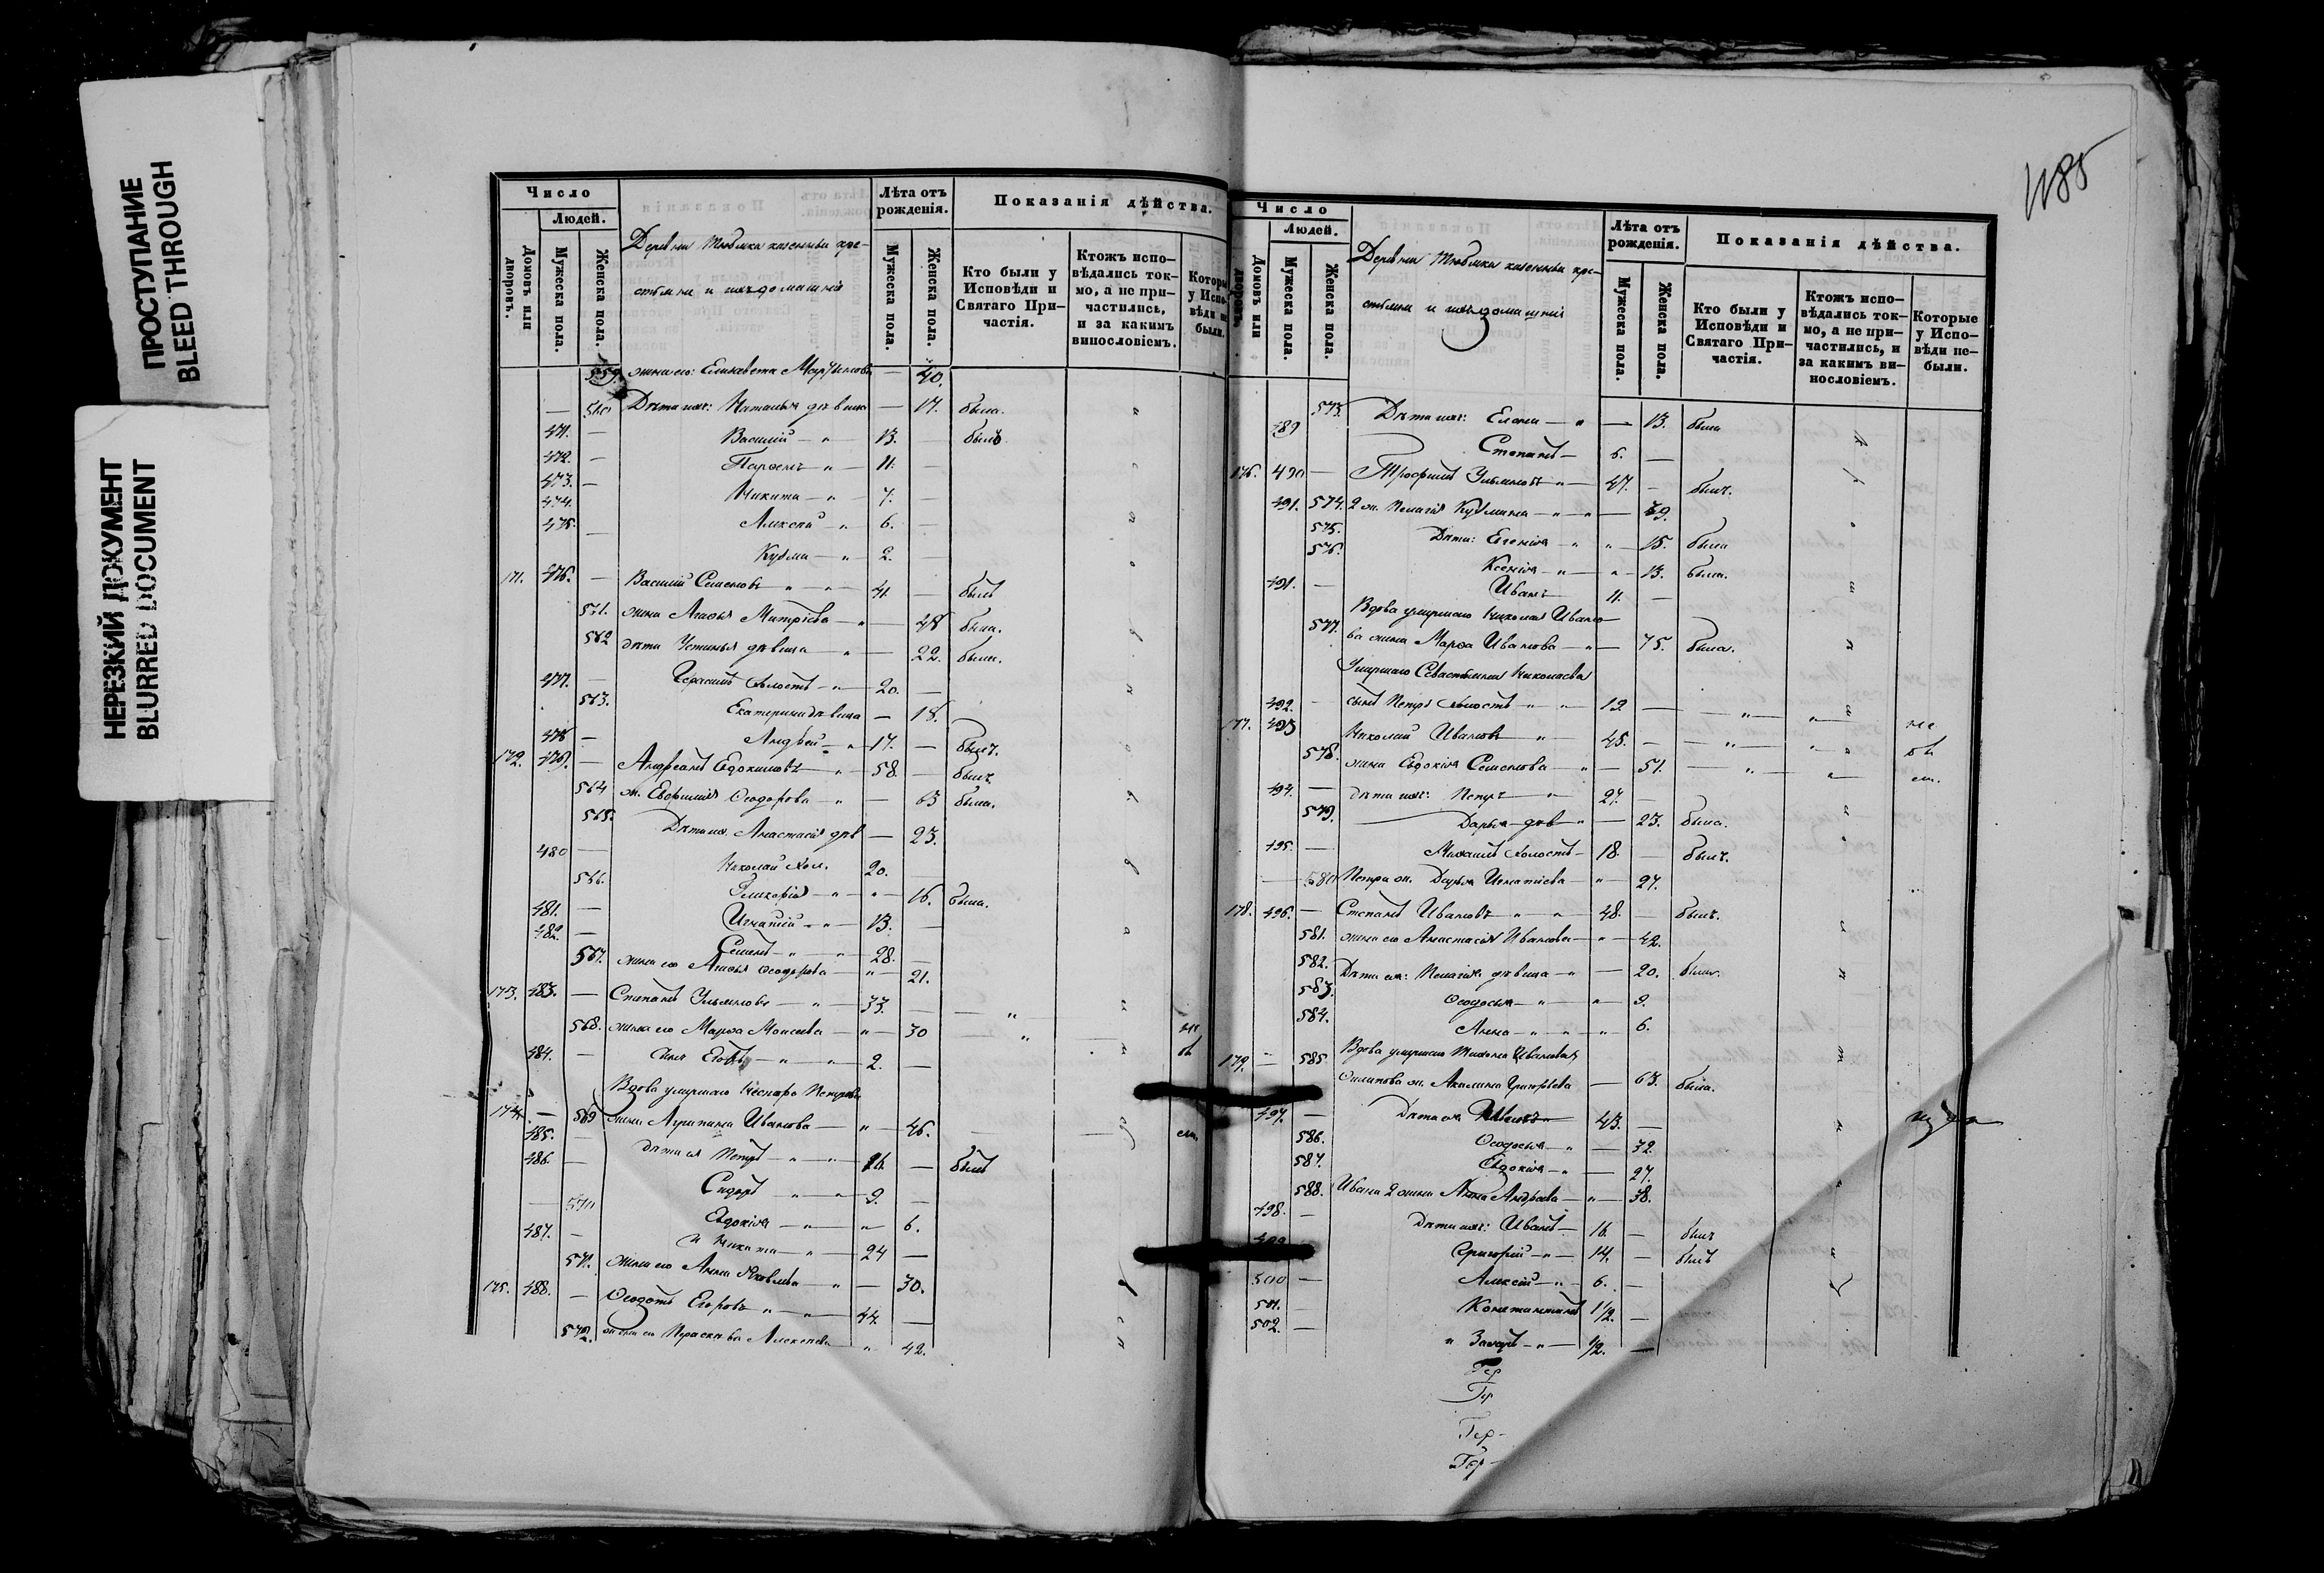 ПРОСТУПАНИЕ
BLEED THROUGH
НЕРЕЗКИЙ ДОКУМЕНТ
BLURRED DOCUMENT
Число
Людей.
Домовъ или дворовъ.
Мужеска пола.
Женска пола.
Деревни казенныи кре-
стьяне и ихъ домашніе
Лѣта отъ рожденія.
Мужеска пола.
Женска пола.
Показанія дѣйства.
Кто были у Исповѣди и Святаго При-частія.
Ктожъ испо-вѣдались ток-мо, а не при-частились, и за какимъ винословіемъ.
Которы у Испо-вѣди не были.
559. жена его: Елисавета — 40.
— 560 Дѣти ихъ: Наталья дѣвица — 17. была.
471. — Василій — 13. — былъ
472. — Парѳенъ — 11. —
473. — Никита — 7. —
474. Алексѣй — 6. —
475. — Кузма — 2. —
171. 476. — Василій Семеновъ 41. — былъ
561. жена Агаѳья Митріева — 48 была.
562 дѣти Устинья дѣвица — 22. была.
477. — Герасимъ холостъ — 20. —
563. Екатерина дѣвица — 18.
478 — Андрей — 17. — былъ.
172. 479. — Андреанъ Евдокимовъ 58. — былъ
564 ж. Евфимія Ѳеодорова — 63 была.
565. Дѣти их. Анастасія дѣв — 23.
480 — Николай хол. 20. —
566. Гликерія — 16. была.
481. — Игнатій — 13. —
482. — Семенъ — 28. —
567. жена его Агаѳья Ѳеодорова — 21.
173. 483. — Степанъ Ульяновъ — 33. —
568. жена его Марѳа Моисеева — 30
484. — сынъ — 2. —
Вдова умершаго Нестора Петрова
174. — 569 жена Агрипина Ивановa — 46.
485. — дѣти ея Петръ — 26. — былъ
486. — Сидоръ — 9. —
— 570 Евдокія — 6.
487. — и Никита — 24 —
571. жена его Анна Яковлева — 30.
175. 488. — Ѳеодотъ Егоровъ 44. —
572. жена его Параскева Алексеева 42.
1185
Число
Людей.
Домовъ или дворовъ.
Мужеска пола.
Женска пола.
Деревни казенныи кре-
стьяне и ихъ домашніе
Лѣта отъ рожденія.
Мужеска пола.
Женска пола.
Показанія дѣйства.
Кто были у Исповѣди и Святаго При-частія.
Ктожъ испо-вѣдались ток-мо, а не при-частились, и за какимъ ви-нословіемъ.
Которые у Испо-вѣди не-были.
573. Дѣти ихъ: Елена — 13. была
489 Степанъ — 6. —
176. 490 — Трофимъ Ульяновъ — 47. — былъ.
491. 574. 2 ж. Пелагія Кузмина — 39.
575. Дѣти: Евгенія — 15. была
576. Ксенія — 13. была.
491. — Иванъ 11. —
Вдова умершаго Николая Ивано-
577. ва жена Марѳа Иванова — 75. была.
Умершаго Севастьяна Николаева
492. — сынъ Петръ холостъ 19. —
177. 493 Николай Ивановъ 45. —
578. жена Евдокія Семенова — 51.
494. — дѣти ихъ: Петръ 27. —
579. Дарья дѣв — 23. была.
495. — Михаилъ холостъ — 18. — былъ.
— 580 Петра ж. Дарья Игнатіева — 27.
178. 496. — Степанъ Ивановъ 48. — былъ.
581. жена его Анастасія Иванова — 42.
582. Дѣти их: Пелагія дѣвица — 20. была.
583. Ѳеодосья — 9.
584. Анна — 6.
179. — 585. Вдова умершаго Ивановa
Филипова ж. Акилина Григорьева — 63. была.
497. — Дѣти ея Иванъ 43. —
586. Ѳеодосья — 32.
587. Евдокія — 27.
588. Ивана 2 жена Анна Андреева — 38.
498. — Дѣти ихъ: Иванъ — 16. — былъ
499 Григорій — 14. — былъ
500 — Алексѣй — 6. —
501. — Константинъ 1 1/2. —
502. — и Захаръ — 1/2. —
Гер
Гр
Гер-
Гер-